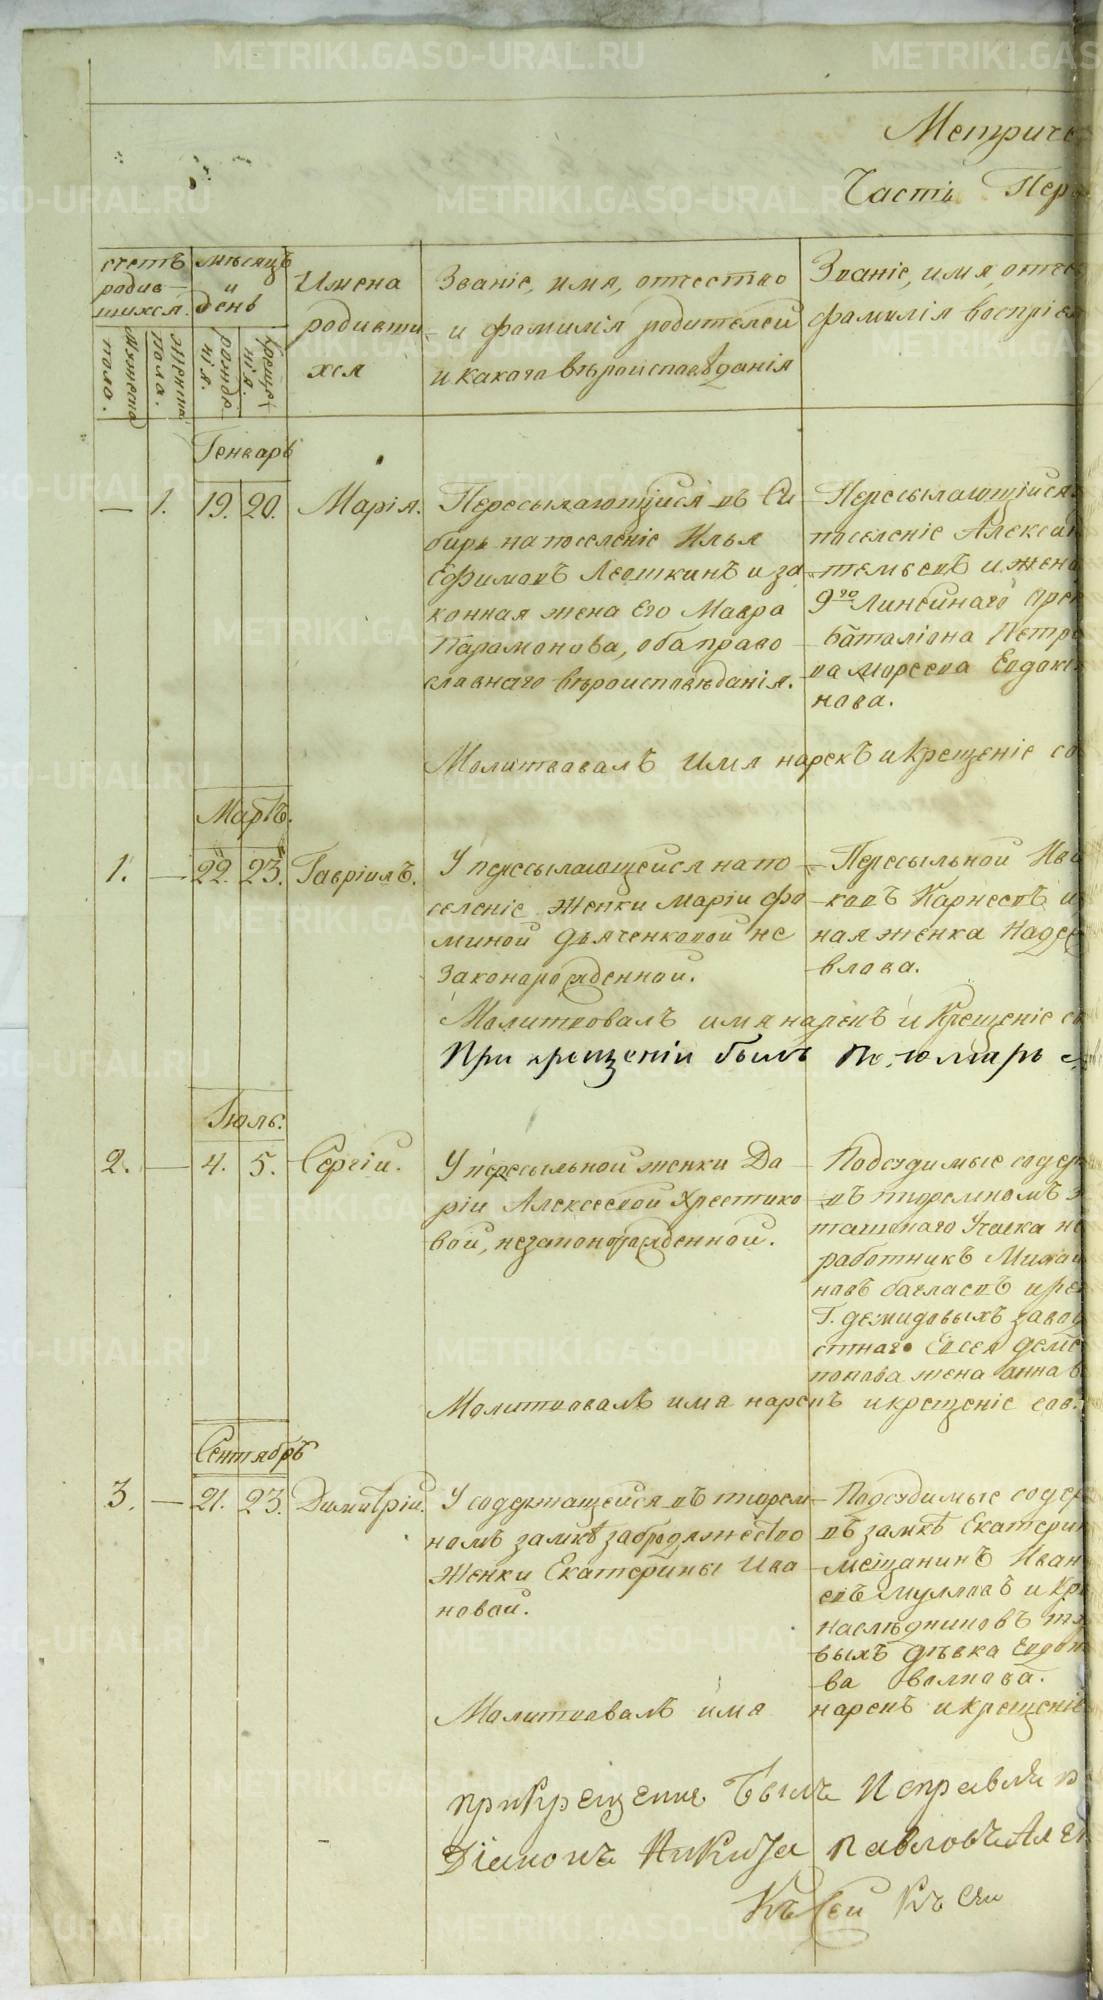 METRIKI.GASO-URAL.RU
Метриче
Часть Пер
счетъ родив—шихся.
мужеска пола.
женска пола.
мѣсяцъ и день
рожденія.
крещенія.
Имена
родивши
хся
Званіе, имя, отчество
и фамилія родителей
и какого вѣроисповѣданія
Званіе, имя, отчес
фамилія воспріем
Генварь
— 1. 19. 20. Марія.
Пересылающійся въ Си
бирь на поселеніе Илья
Ефимовъ Леошкинъ и за
конная жена его Мавра
Парамонова, оба право
славнаго вѣроисповѣданія.
Пересылающійся
поселеніе Алексѣ
тьевъ и жена
9го Линейнаго Орен
баталіона Петр
Евдоки
нова.
Молитвовалъ имя нарекъ и крещеніе со
Мартъ.
1. — 22. 23. Гавріилъ.
У пересылающейся на по
селеніе женки Маріи Фо
миной Дьяченковой не
законорожденной.
Пересыльной Ива
ковъ Карнеевъ и
ная женка Надеж
влова.
Молитвовалъ имя нарекъ и крещеніе со
При крещеніи былъ Пономарь
Іюль.
2. — 4. 5. Сергій.
У пересыльной женки Да
ріи Алексеевой Хрестико
вой, незаконорожденной.
Подсудимые содер
въ тюремномъ з
работникъ Михаи
новъ
Г. Демидовыхъ завод
Евсея Деме
жена Анна
Молитвовалъ имя нарекъ и крещеніе сов.
Сентябрь
3. — 21. 23. Димитрій.
У содержащейся въ тюрем
номъ замкѣ за бродяжество
женки Екатерины Ива
новой.
Подсудимые содер
въ замкѣ Екатерин
мещанинъ Иван
евъ Мулловъ и Кр
наслѣдниковъ
выхъ дѣвка Евдок
ва Волкова.
Молитвовалъ имя нарекъ и крещеніе
При Крещение былъ Исправля
Діаконъ Никита Павловъ Але